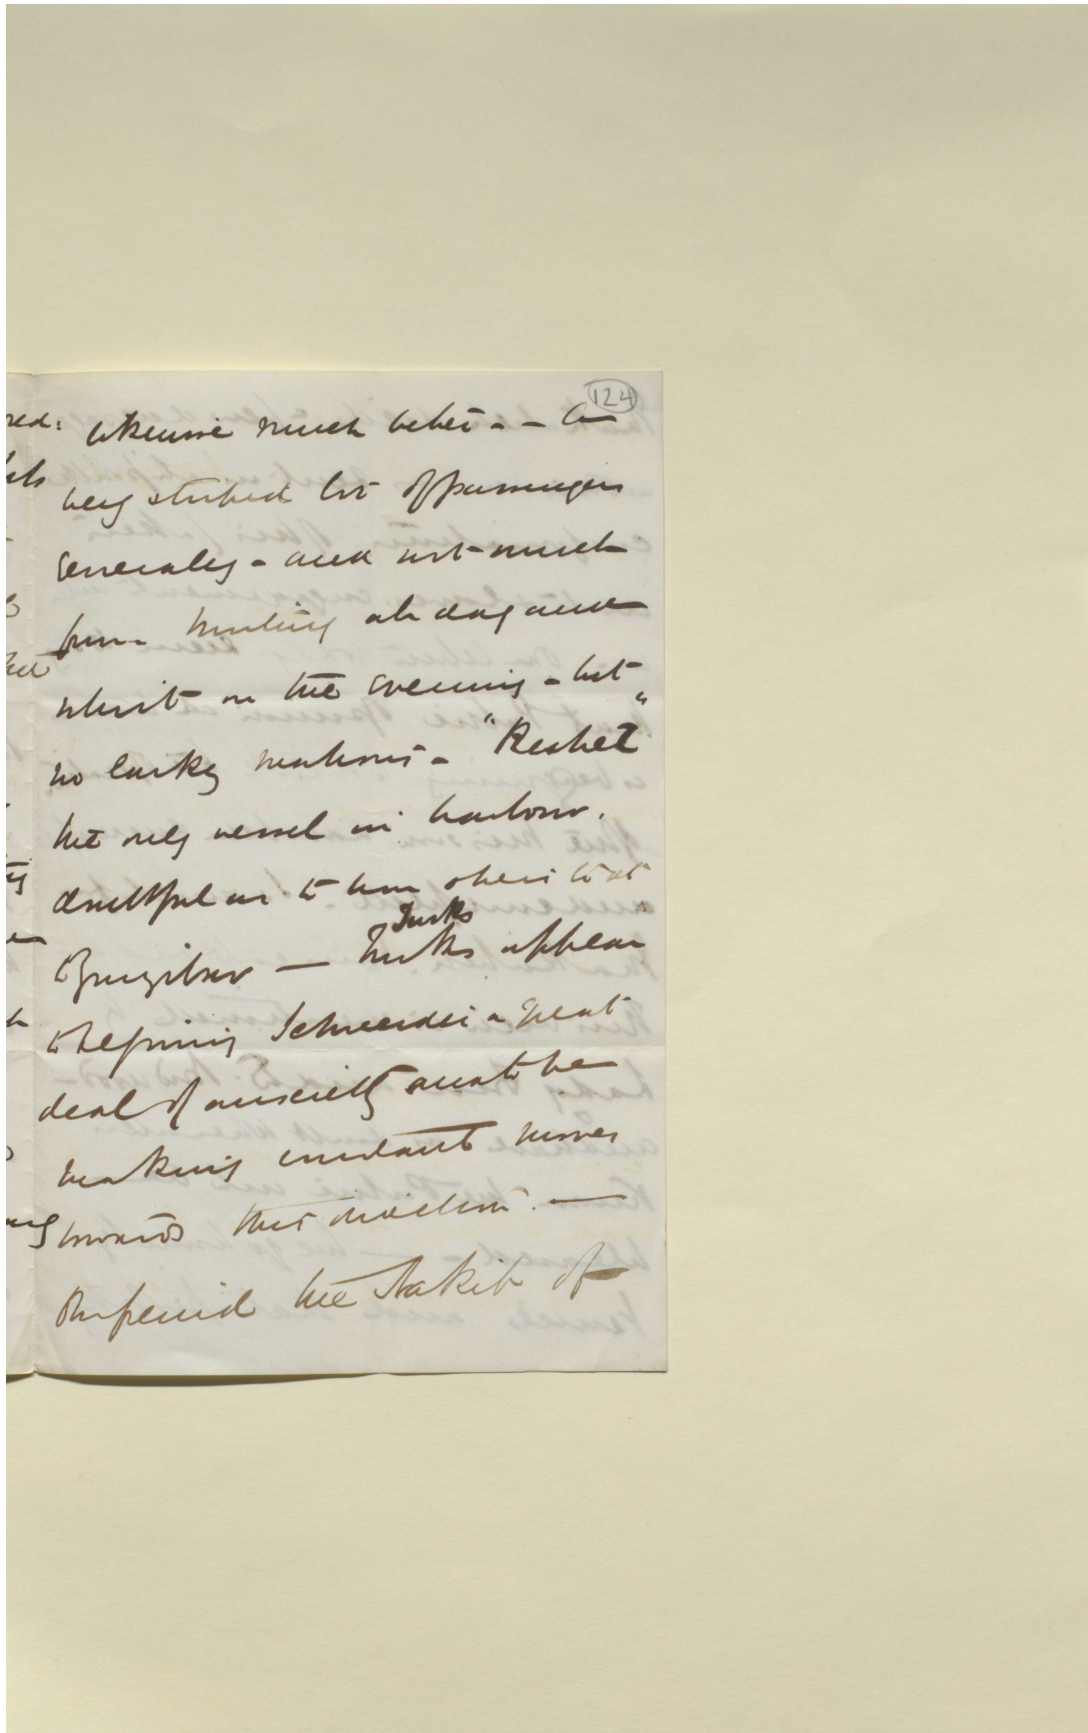 124
likewise much better - - a
very stupid lot of passengers
generally - and not much
fun. Malting all day and
whist in the evening - but
no larky matrons - "Reshet"
the only vessel in harbour.
doubtful as to how she is to get
to Zanzibar — Turks
Turks appear
to be giving Schneider a great
deal of anxiety and to be
making constant moves
towards this direction. —
the Nakib of